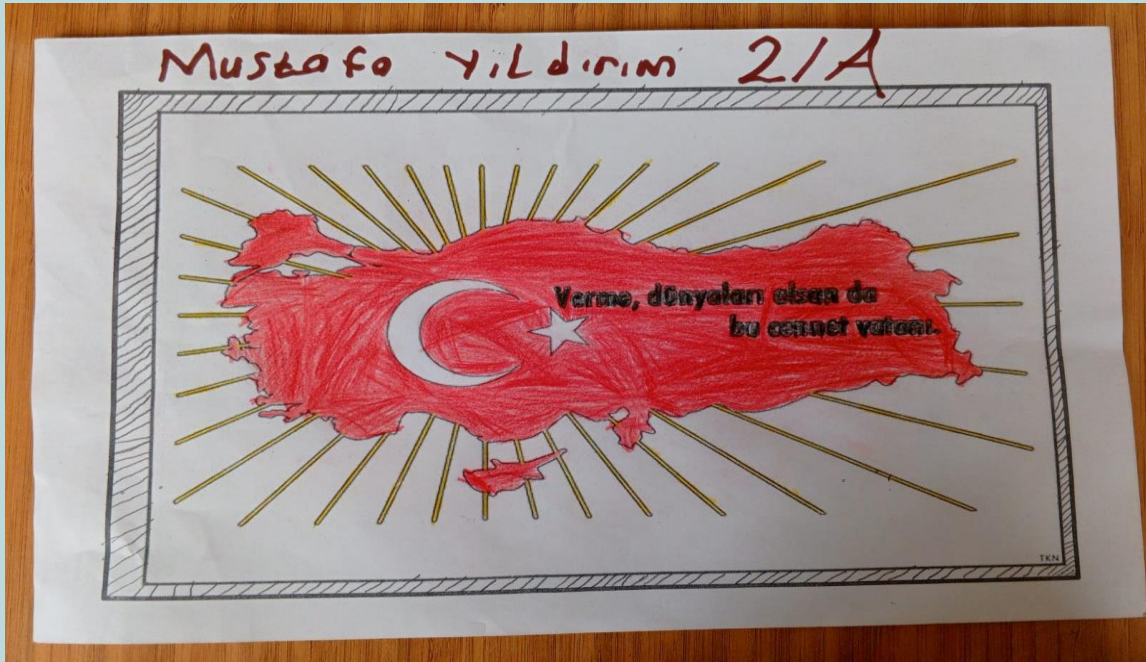 Mustafa Yıldırım 2/A
Verme, dünyaları alsan da
bu cennet vatanı.
TKN